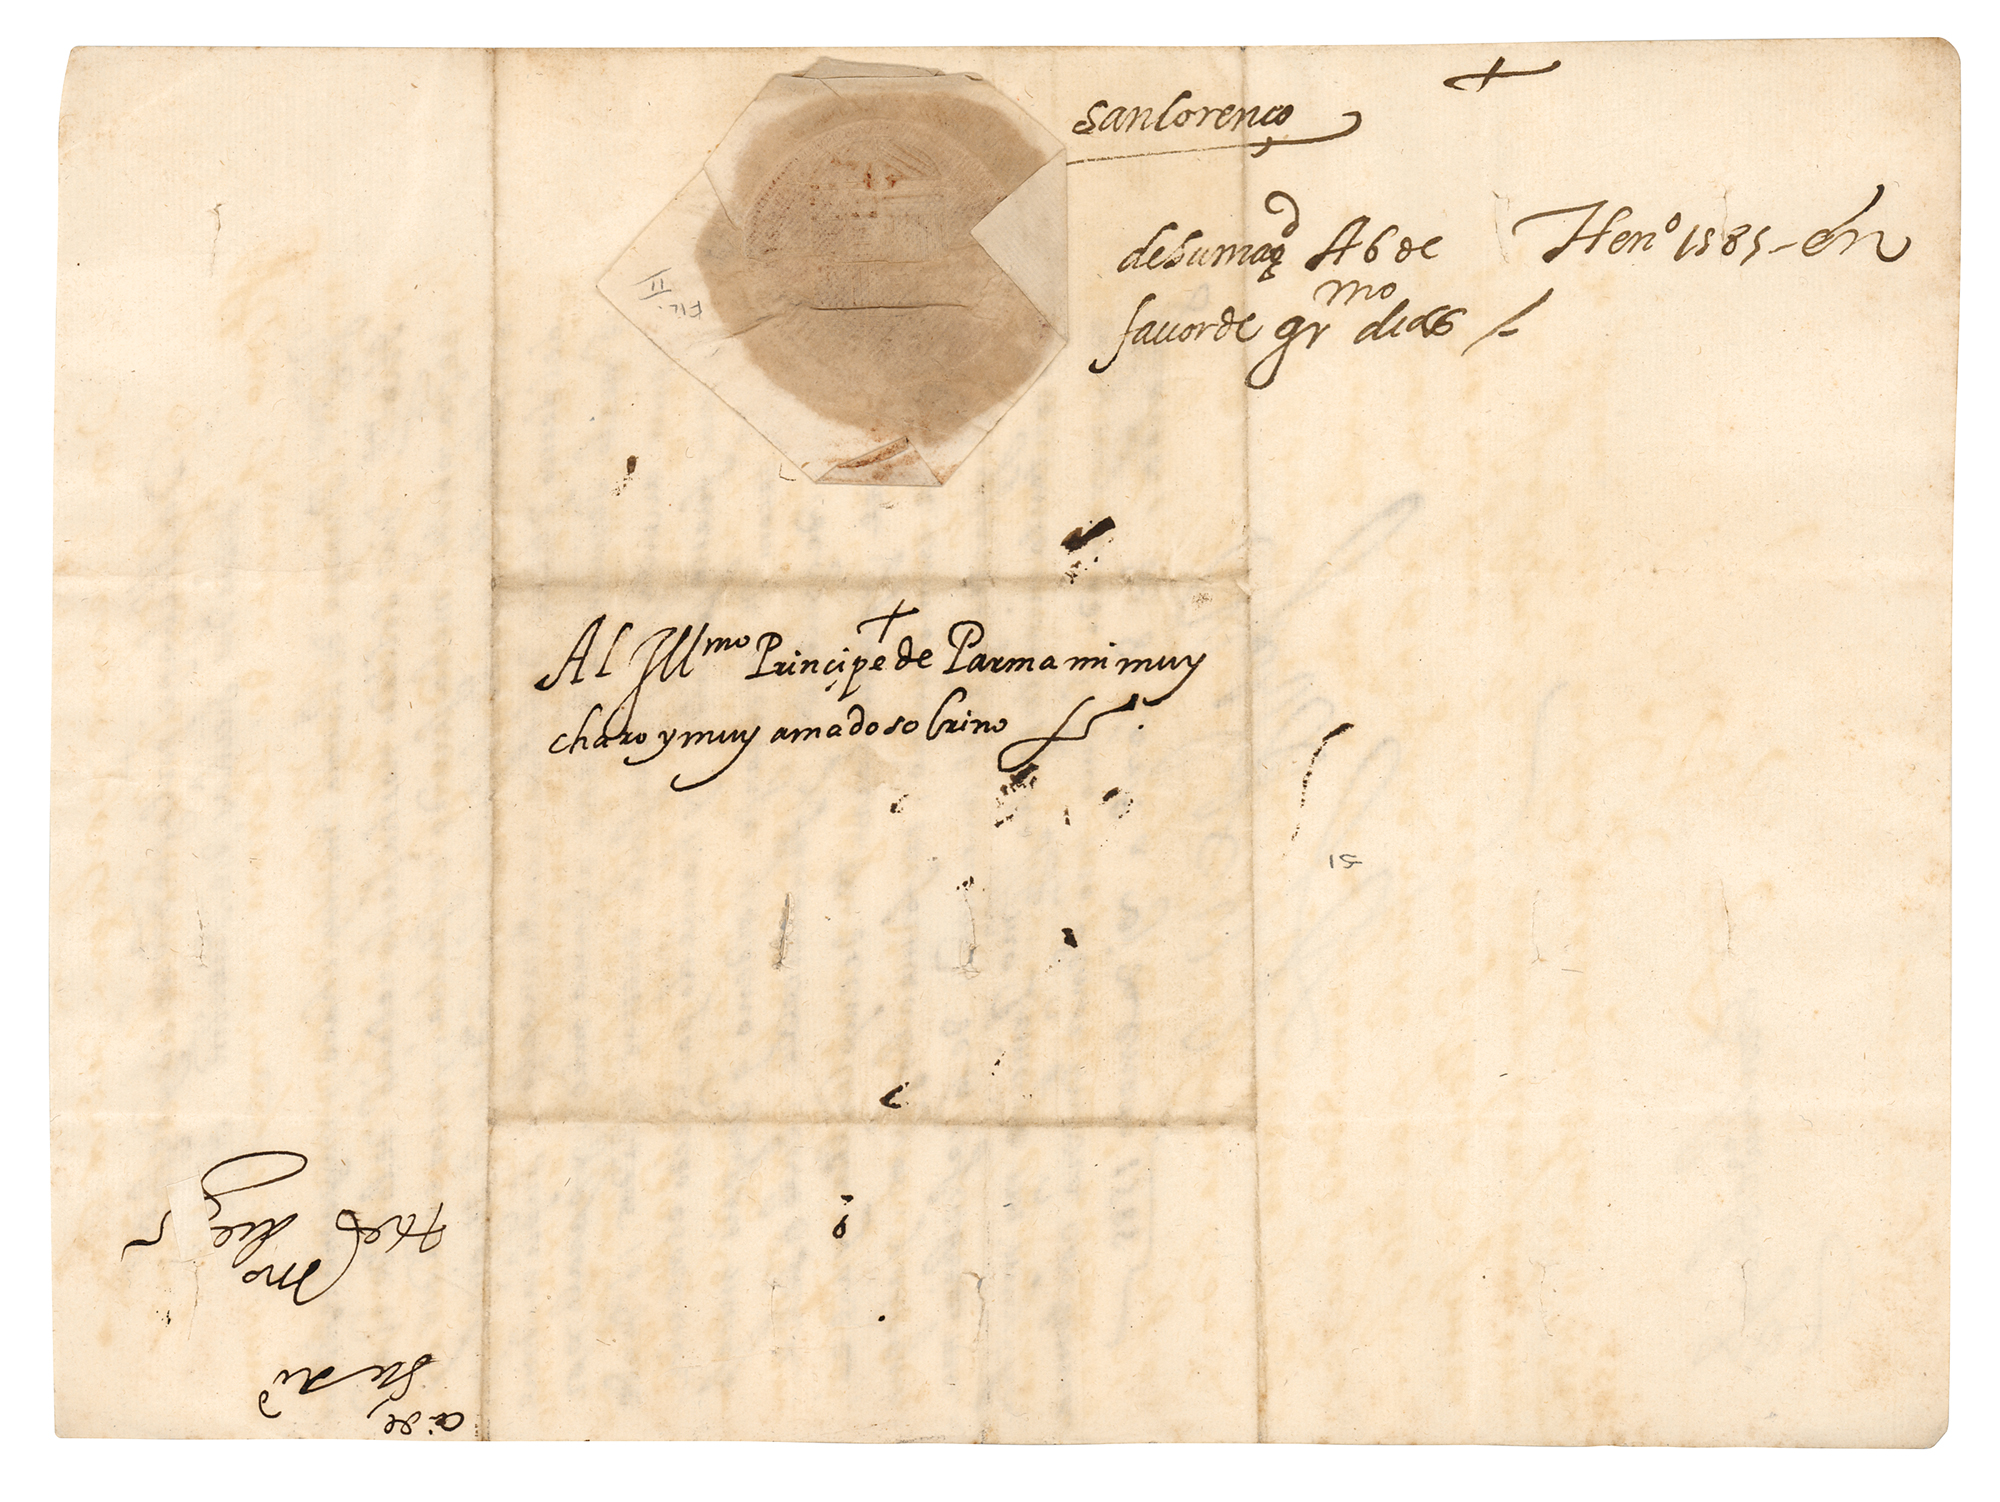 sanlorenço
desumagd A6 de Hen° 1585 - en
fauor de grmo dias
Al Illmo Prinçipe de Parma mi muy
charo y muy amado sobrino
FIL.
II
15